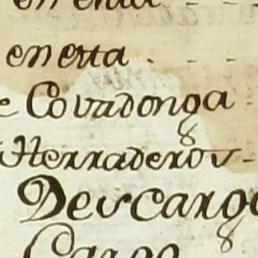 en etta
e Covadonga
Herraderos
Descargo
Cargo